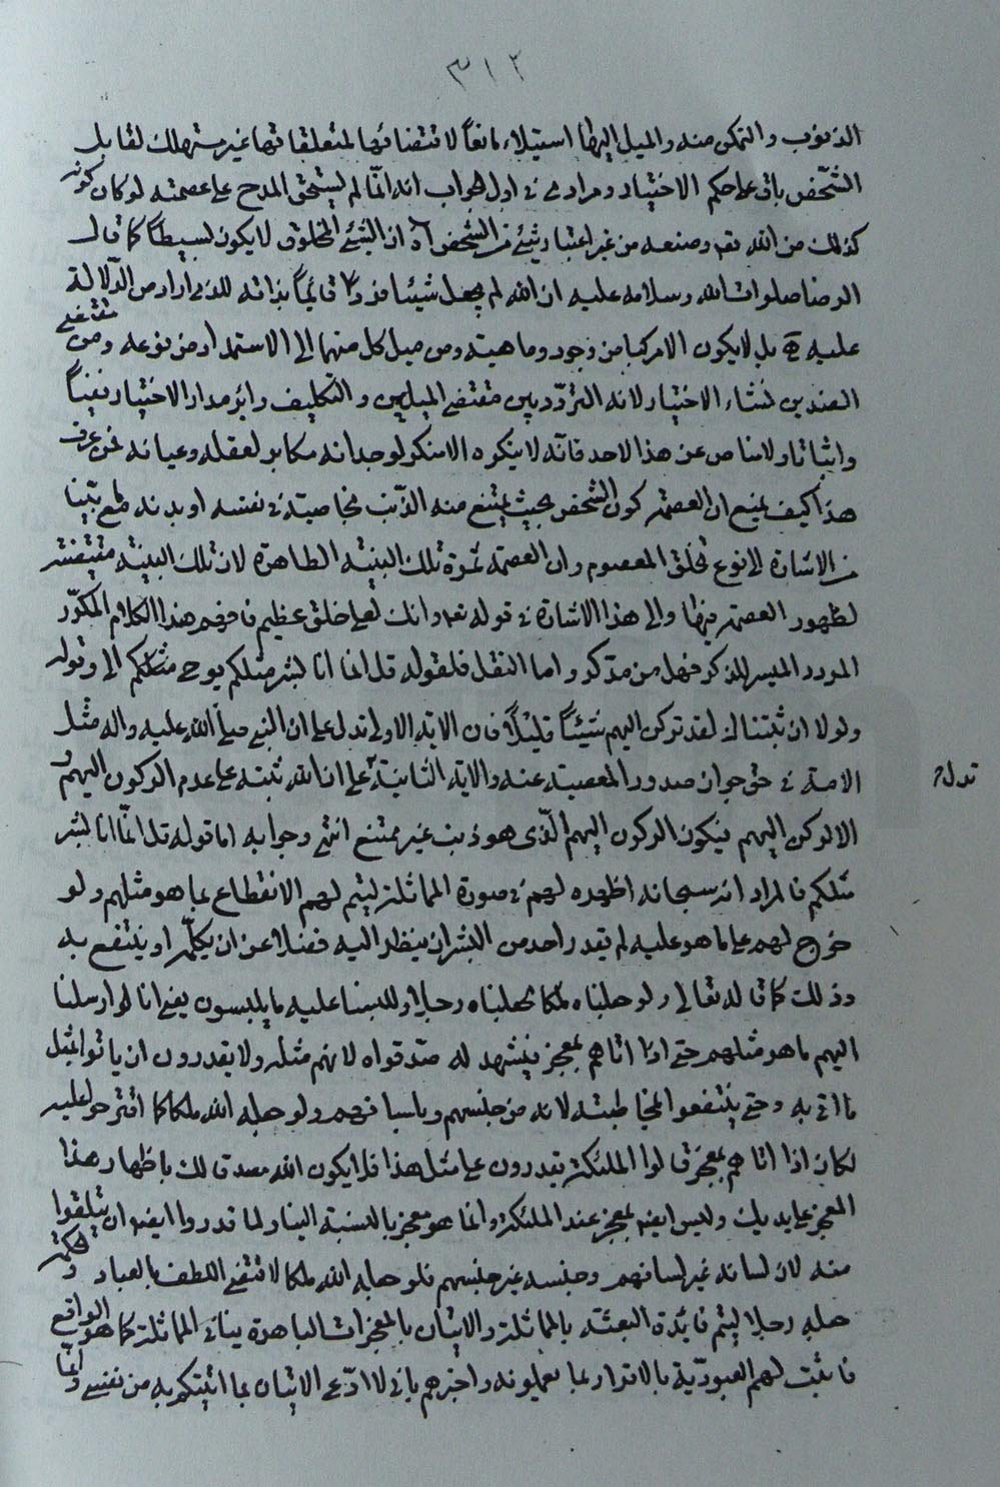 ٣١٢
الذنوب والتمكن منه والميل اليها استيلاء مانعاً لاقتضائها لمتعلقاتها غير مستهلك لقابل
الشخص باق على حكم الاختيار ومرادى فى اول الجواب انه انما لم يستحق المدح على عصمته لو كان كونه
كذلك من الله تعه وصنعه من غير اعتبار شيئ من الشخص اذ ان الشيئ المخلوق لا يكون بسيطاً كما قال
الرضا صلوات الله وسلامه عليه ان الله لم يجعل شيئا فرداً قائماً بذاته للذى اراد من الدلالة
عليه بل لا يكون الا مركبا من وجود وماهية ومن ميل كل منهما الى الاستمداد من نوعه ومن مقتضى
الضدين نشاء الاختيار لانه التردد بين مقتضى الميلين والتكليف دائر مدار الاختيار نفياً
واثباتا ولا مناص عن هذا لاحد فانه لا ينكره الا منكر لوجدانه مكابر لعقله وعيانه فمن عرف
هذا كيف يمنع ان العصمة كون الشخص بحيث يمتنع منه الذنب بخاصية فى نفسه او بدنه مع بيّنا
من الاشارة الى نوع تخلق المعصوم وان العصمة ثمرة تلك البنية الطاهرة لان تلك البنية مقتضية
لظهور العصمة فيها والى هذا الاشارة فى قوله تعه وانك لعلى خلق عظيم فافهم هذا الكلام المكرّر
المردد الميسر للذكر فهل من مدّكر واما النقل فلقوله قل انما انا بشر مثلكم يوحى الى وقوله
ولولا ان ثبتناك لقد تركن اليهم شيئاً قليلاً فان الاية الاولى تدل على ان النبى صلى الله عليه واله مثل
الامة فى حق جواز صدور المعصية عنه والاية الثانية على ان الله ثبته على عدم الركون اليهم و
تدل
الا لركن اليهم فيكون الركون اليهم الذى هو ذنب غير ممتنع انتهى وجوابه اما قوله قل انما انا بشر
مثلكم فالمراد انه سبحانه اظهره لهم فى صورة المماثلة ليتم لهم الانقطاع بما هو مثلهم ولو
خرج لهم على ما هو عليه لم يقدر احد من البشر ان ينظر اليه فضلا عن ان يكلّمه او ينتفع به
وذلك كما قال تعالى ولو جعلناه ملكا لجعلناه رجلا وللبسنا عليهم ما يلبسون يعنى انا لو ارسلنا
اليهم ما هو مثلهم حتى اذا اتاهم بمعجز فيشهد له صدقوه لانهم مثله ولا يقدرون ان ياتوا بمثل
ما اتى به وحتى ينتفعوا بمخاطبته لانه من جنسهم وبلسانهم ولو جعله الله ملكا كما اقترحوا عليه
لكان اذا اتاهم بمعجز قالوا الملئكة يقدرون على مثل هذا فلا يكون الله مصدقا لك باظهار هذا
المعجز على يديك وليس ايضه بمعجز عند الملئكة وانما هو معجز بالنسبة الينا ولما قدروا ايضه ان يتلقوا
منه لان لسانه غير لسانهم وجنسه غير جنسهم فلو جعله الله ملكا لاقتضى اللطف بالعباد والحكمة
جعله رجلا ليتم فائدة البعثة بالمماثلة والاتيان بالمعجزات الباهرة ينافى المماثلة كما هو الواقع
فاثبت لهم العبودية بالاقرار بما يعملونه واخبرهم بانى لا ادّعى الاتيان بما اتيتكم به من نفسى وانما